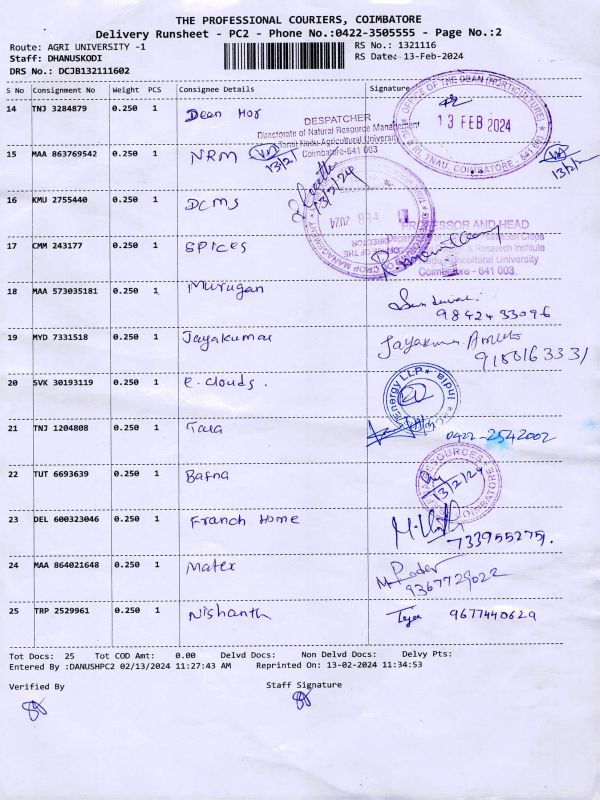 THE PROFESSIONAL COURIERS, COIMBATORE
Delivery Runsheet - PC2 - Phone No.:0422-3505555 - Page No.:2
Route: AGRI UNIVERSITY -1 RS No.: 1321116
Staff: DHANUSKODI RS Date: 13-Feb-2024
DRS No.: DCJB132111602
S No Consignment No Weight PCS Consignee Details Signature
14 TNJ 3284879 0.250 1 Dean Hor
OFFICE OF THE DEAN (HORTICULTURE)
13 FEB 2024
TNAU, COIMBATORE
DESPATCHER
Directorate of Natural Resource Management
Tamil Nadu Agricultural University
Coimbatore-641 003
15 MAA 863769542 0.250 1 NRM 13/2/
13/2/24
16 KMU 2755440 0.250 1 DCMS
CROP MANAGEMENT
PROFESSOR AND HEAD
& Research Institute
Agricultural University
Coimbatore - 641 003
17 CMM 243177 0.250 1 SPICES
18 MAA 573035181 0.250 1 Murugan
9842433096
19 MYD 7331518 0.250 1 Jayakumar
20 SVK 30193119 0.250 1 e.clouds.
Energy LLP * India
21 TNJ 1204808 0.250 1 Tara 0422-2542002
22 TUT 6693639 0.250 1 Bafna 13/2/24
23 DEL 600323046 0.250 1 Franch Home
733955275.
24 MAA 864021648 0.250 1 Matex
9367729022
25 TRP 2529961 0.250 1 Nishanth 9677440629
Tot Docs: 25 Tot COD Amt: 0.00 Delvd Docs: Non Delvd Docs: Delvy Pts:
Entered By :DANUSHPC2 02/13/2024 11:27:43 AM Reprinted On: 13-02-2024 11:34:53
Verified By Staff Signature